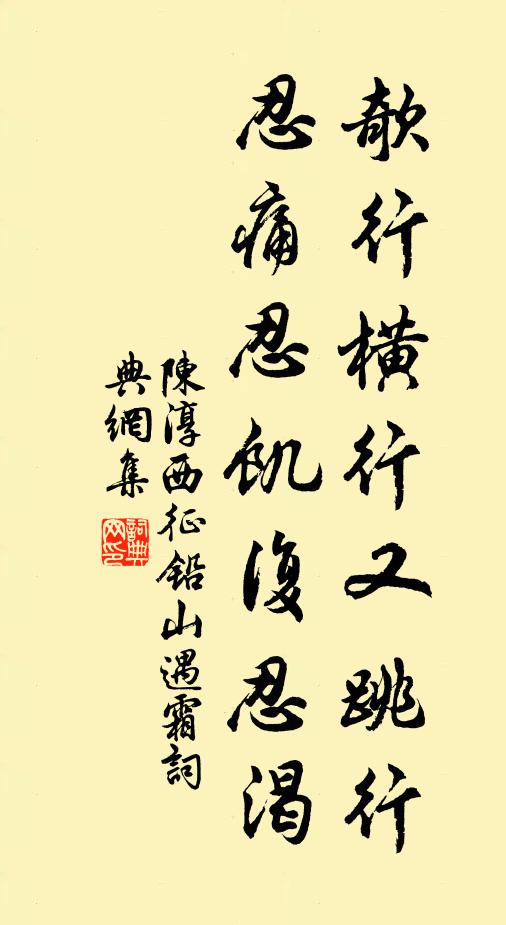 欹行橫行又跳行
忍痛忍飢復忍渴
陳淳西征鉛山遇霜詞
典網集
詞典網印